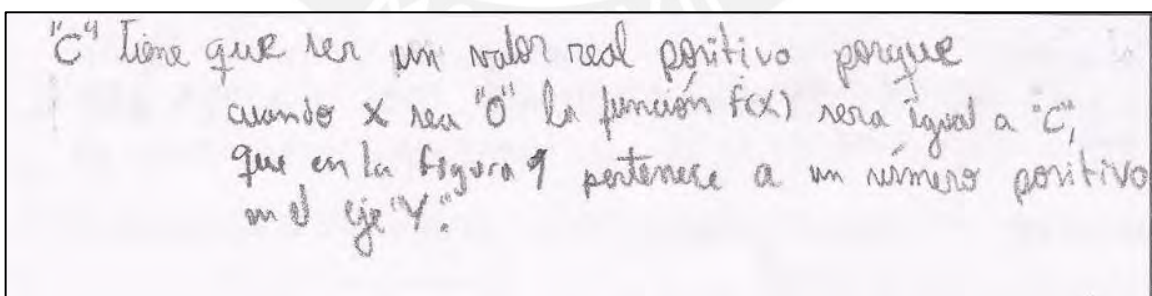 "C" tiene que ser un valor real positivo porque
cuando x sea "0" la función f(x) sera igual a "C",
que en la figura 9 pertenece a un número positivo
en el eje "Y".